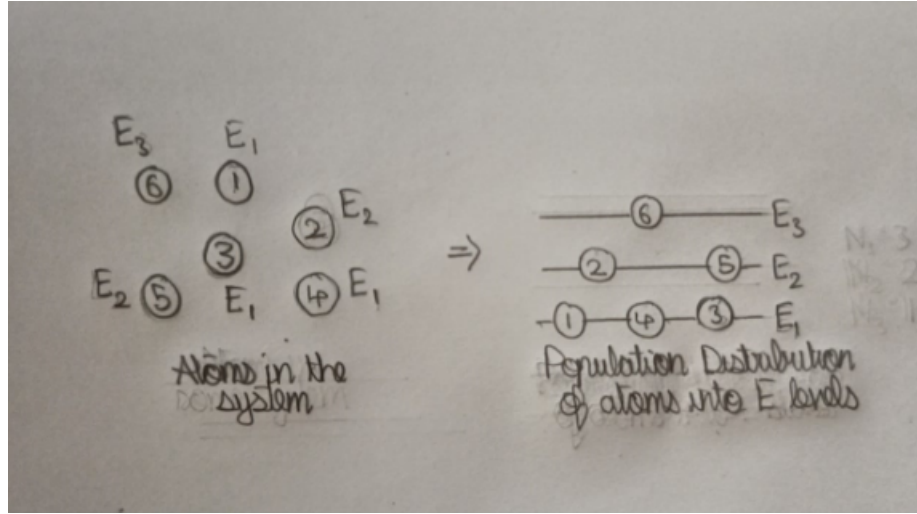 E₃ E₁
⑥ ①
② E₂
③
E₂ ⑤ E₁ ④ E₁
Atoms in the
system
⇒
⑥ E₃
② ⑤ E₂
① ④ ③ E₁
Population Distribution
of atoms into E levels
N₁ 3
N₂ 2
N₃ 1